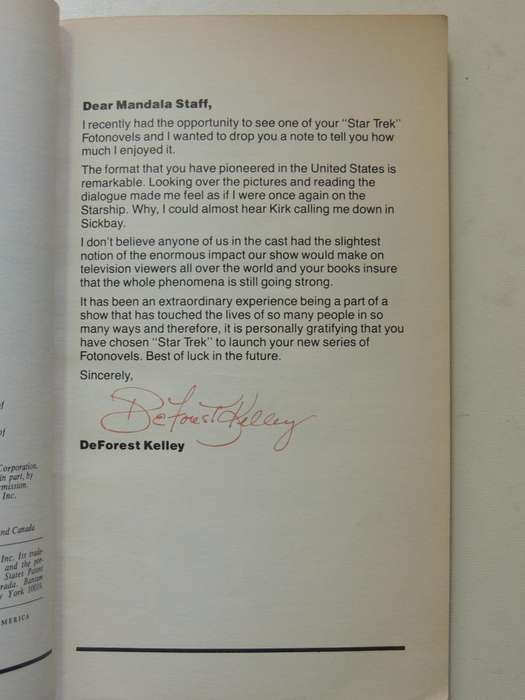 Dear Mandala Staff,
I recently had the opportunity to see one of your "Star Trek"
Fotonovels and I wanted to drop you a note to tell you how
much I enjoyed it.
The format that you have pioneered in the United States is
remarkable. Looking over the pictures and reading the
dialogue made me feel as if I were once again on the
Starship. Why, I could almost hear Kirk calling me down in
Sickbay.
I don't believe anyone of us in the cast had the slightest
notion of the enormous impact our show would make on
television viewers all over the world and your books insure
that the whole phenomena is still going strong.
It has been an extraordinary experience being a part of a
show that has touched the lives of so many people in so
many ways and therefore, it is personally gratifying that you
have chosen "Star Trek" to launch your new series of
Fotonovels. Best of luck in the future.
Sincerely,
DeForest Kelley
DeForest Kelley
of
of
Corporation.
in part, by
mission.
Inc.
nd Canada
Inc. Its trade-
and the por-
States Patent
rada. Bantam
York 10019.
MERICA